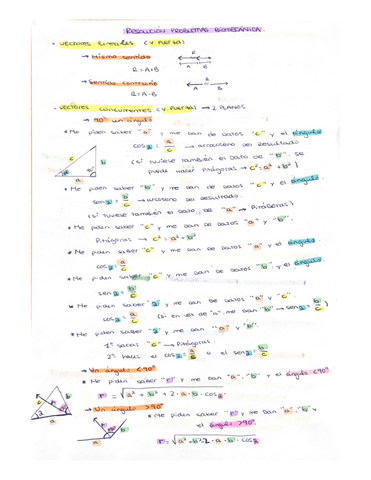 RESOLUCIÓN PROBLEMAS BIOMECÁNICA.
- VECTORES lineales (V. FUERZA)
→ Mismo sentido
R = A+B
→ Sentido contrario
R = A-B
- VECTORES CONCURRENTES (V. FUERZA) → 2 PLANOS
→ 90° un ángulo
* Me piden saber "a" y me dan de datos "c" y el ángulo
cos α = a/c → arcoseno del resultado
(si tuviese también el dato de "b", se
puede hacer Pitágoras → c² = a² + b²)
* Me piden saber "b" y me dan de datos "c" y el ángulo
sen α = b/c → arcoseno del resultado
(si tuviese también el dato de "a" → Pitágoras)
* Me piden saber "c" y me dan de datos "a" y "b".
Pitágoras → c² = a² + b²
* Me piden saber "c" y me dan de datos "a" y el ángulo
cos α = a/c
* Me piden saber "c" y me dan de datos "b" y el ángulo
sen α = b/c
* Me piden saber α y me dan de datos "a" y "c".
cos α = a/c (si en vez de "a", me dan "b" → sen α = b/c)
* Me piden saber α y me dan "a" y "b"
1º sacas "c" → Pitágoras
2º haces el cos α = a/c o el sen α = b/c
→ Un ángulo < 90°
* Me piden saber "r" y me dan "a", "b" y el ángulo < 90°
r = √a² + b² + 2 · a · b · cos α
→ Un ángulo > 90°
* Me piden saber "r" y me dan "a", "b" y
el ángulo > 90°.
r = √a² + b² - 2 · a · b · cos α